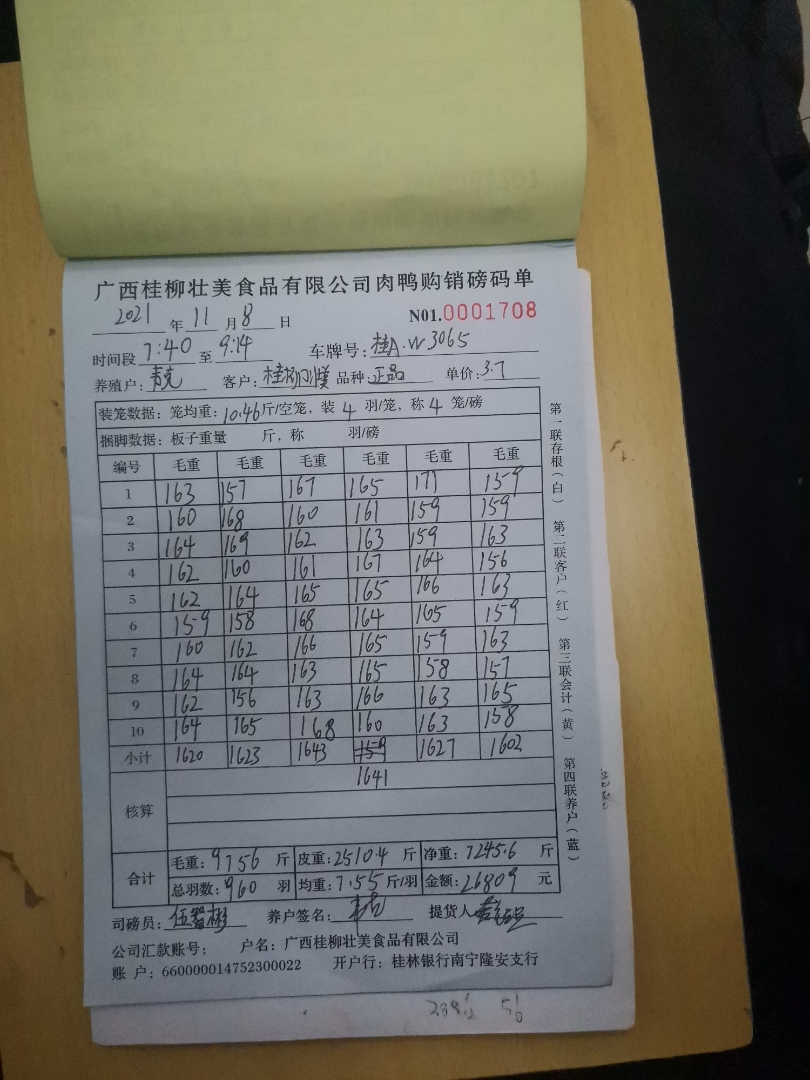 广西桂柳壮美食品有限公司肉鸭购销磅码单
2021 年 11 月 8 日 N01.0001708
时间段 7:40 至 9:14 车牌号: 桂A·W3065
养殖户: 客户: 品种: 正品 单价: 3.7
装笼数据: 笼均重: 10.46 斤/空笼, 装 4 羽/笼, 称 4 笼/磅
捆脚数据: 板子重量 斤, 称 羽/磅
编号 毛重 毛重 毛重 毛重 毛重 毛重
1 163 157 167 165 171 159
2 160 168 160 161 159 159
3 164 169 162 163 159 163
4 162 160 161 167 164 156
5 162 164 165 165 166 163
6 159 158 168 164 165 159
7 160 162 166 165 159 163
8 164 164 163 165 158 157
9 162 156 163 166 163 165
10 164 165 168 160 163 158
小计 1620 1623 1643 1627 1602
1641
核算
合计 毛重: 9756 斤 皮重: 2510.4 斤 净重: 7245.6 斤
总羽数: 960 羽 均重: 7.55 斤/羽 金额: 26809 元
司磅员: 伍智彬 养户签名: 提货人
公司汇款账号: 户名: 广西桂柳壮美食品有限公司
账 户: 660000014752300022 开户行: 桂林银行南宁隆安支行
第一联存根(白) 第二联客户(红) 第三联会计(黄) 第四联养户(蓝)